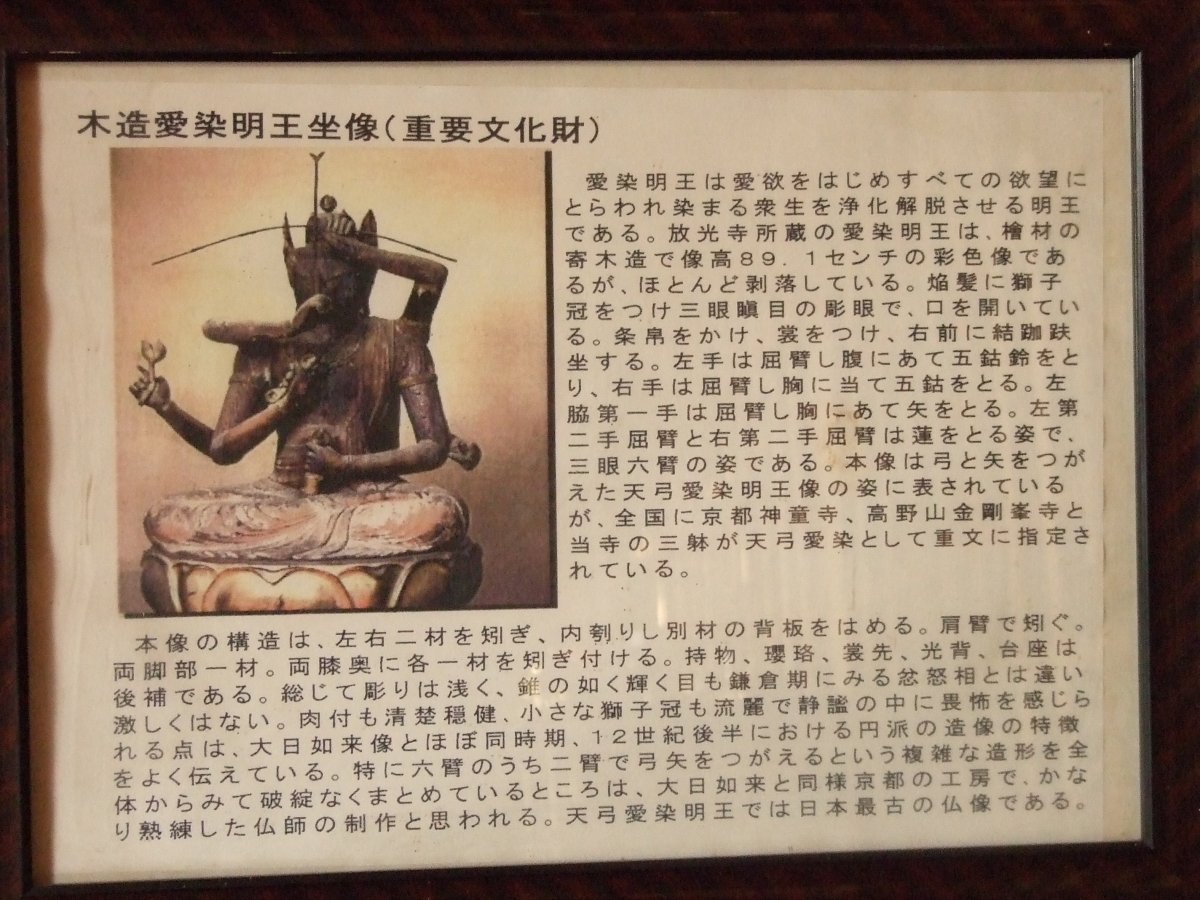 木造愛染明王坐像(重要文化財)
愛染明王は愛欲をはじめすべての欲望に
とらわれ染まる衆生を浄化解脱させる明王
である。放光寺所蔵の愛染明王は、檜材の
寄木造で像高89.1センチの彩色像であ
るが、ほとんど剥落している。焔髪に獅子
冠をつけ三眼瞋目の彫眼で、口を開いてい
る。条帛をかけ、裳をつけ、右前に結跏趺
坐する。左手は屈臂し腹にあて五鈷鈴をと
り、右手は屈臂し胸に当て五鈷をとる。左
脇第一手は屈臂し胸にあて矢をとる。左第
二手屈臂と右第二手屈臂は蓮をとる姿で、
三眼六臂の姿である。本像は弓と矢をつが
えた天弓愛染明王像の姿に表されている
が、全国に京都神童寺、高野山金剛峯寺と
当寺の三躰が天弓愛染として重文に指定さ
れている。
本像の構造は、左右二材を矧ぎ、内刳りし別材の背板をはめる。肩臂で矧ぐ。
両脚部一材。両膝奥に各一材を矧ぎ付ける。持物、瓔珞、裳先、光背、台座は
後補である。総じて彫りは浅く、錐の如く輝く目も鎌倉期にみる忿怒相とは違い
激しくはない。肉付も清楚穏健、小さな獅子冠も流麗で静謐の中に畏怖を感じら
れる点は、大日如来像とほぼ同時期、12世紀後半における円派の造像の特徴
をよく伝えている。特に六臂のうち二臂で弓矢をつがえるという複雑な造形を全
体からみて破綻なくまとめているところは、大日如来と同様京都の工房で、かな
り熟練した仏師の制作と思われる。天弓愛染明王では日本最古の仏像である。